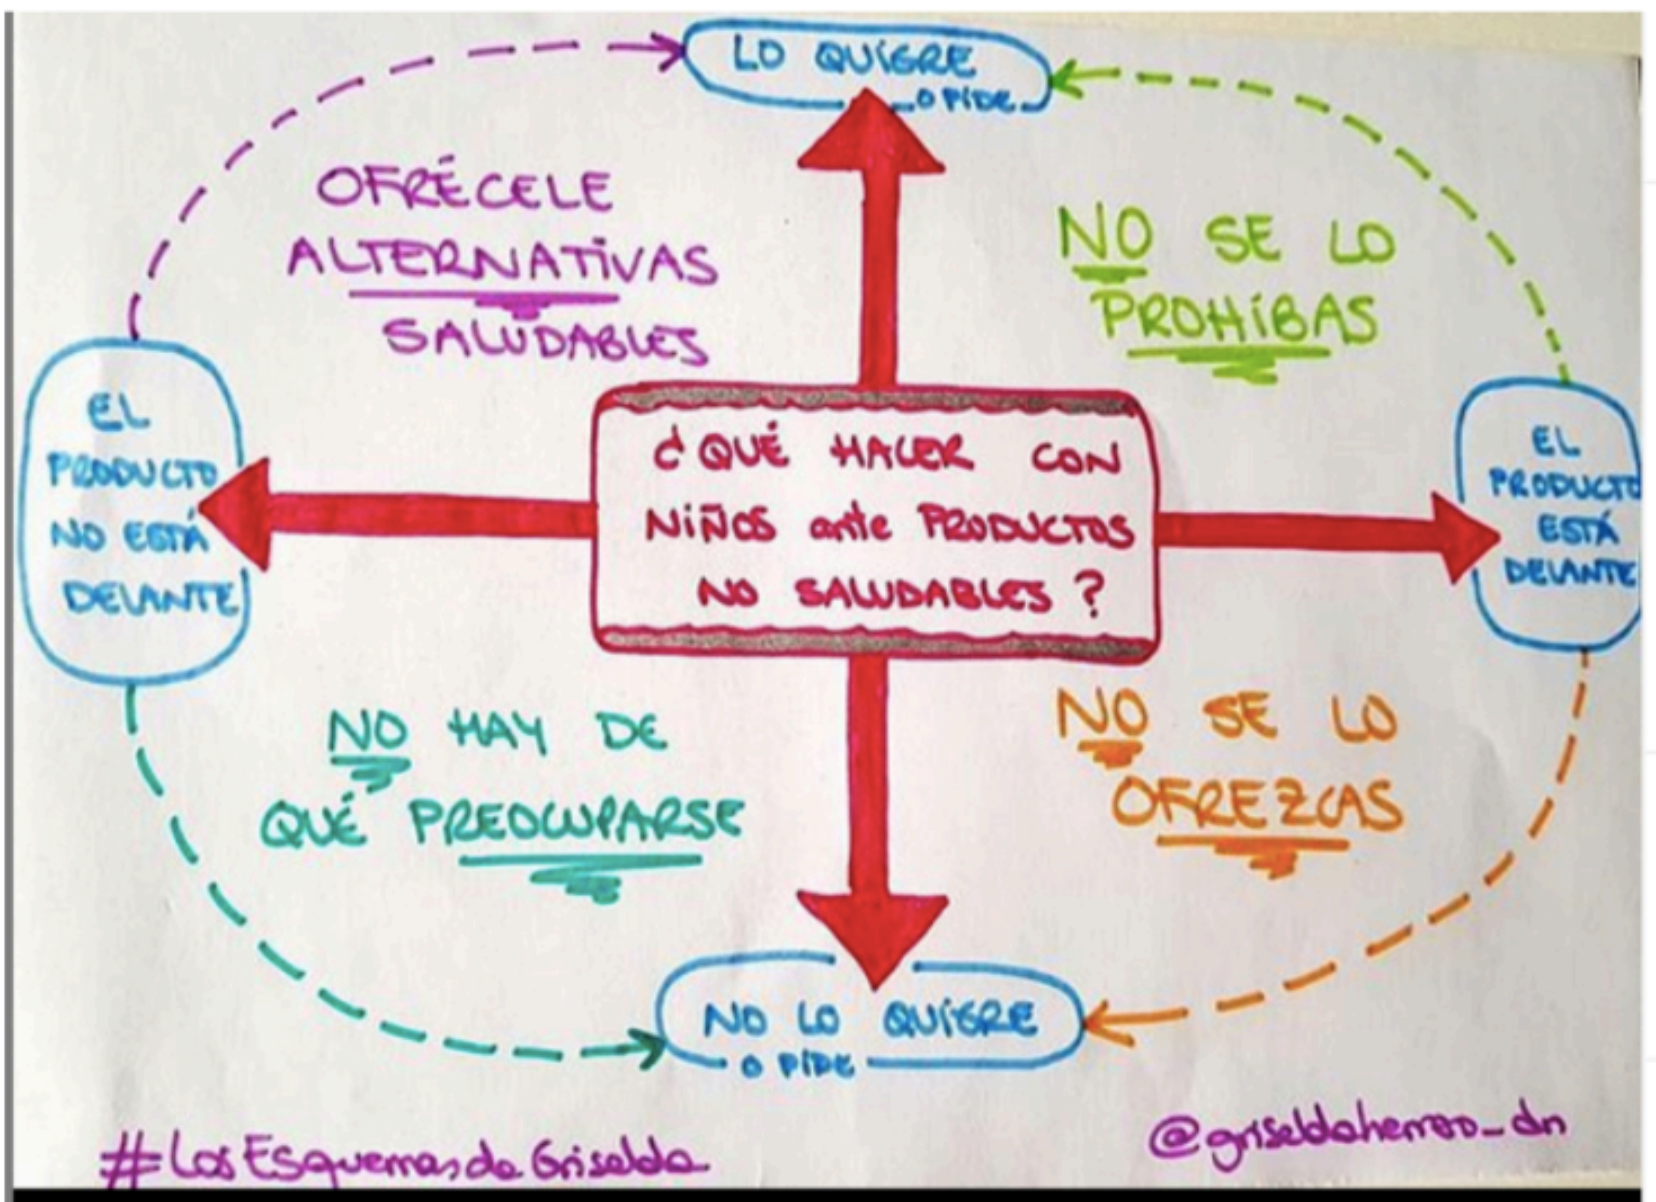 LO QUIERE
O PIDE
OFRÉCELE
ALTERNATIVAS
SALUDABLES
NO SE LO
PROHIBAS
EL
PRODUCTO
NO ESTÁ
DELANTE
¿QUÉ HACER CON
NIÑOS ante PRODUCTOS
NO SALUDABLES?
EL
PRODUCTO
ESTÁ
DELANTE
NO HAY DE
QUÉ PREOCUPARSE
NO SE LO
OFREZCAS
NO LO QUIERE
O PIDE
#LosEsquemasdeGriselda
@griseldaherrero_dn